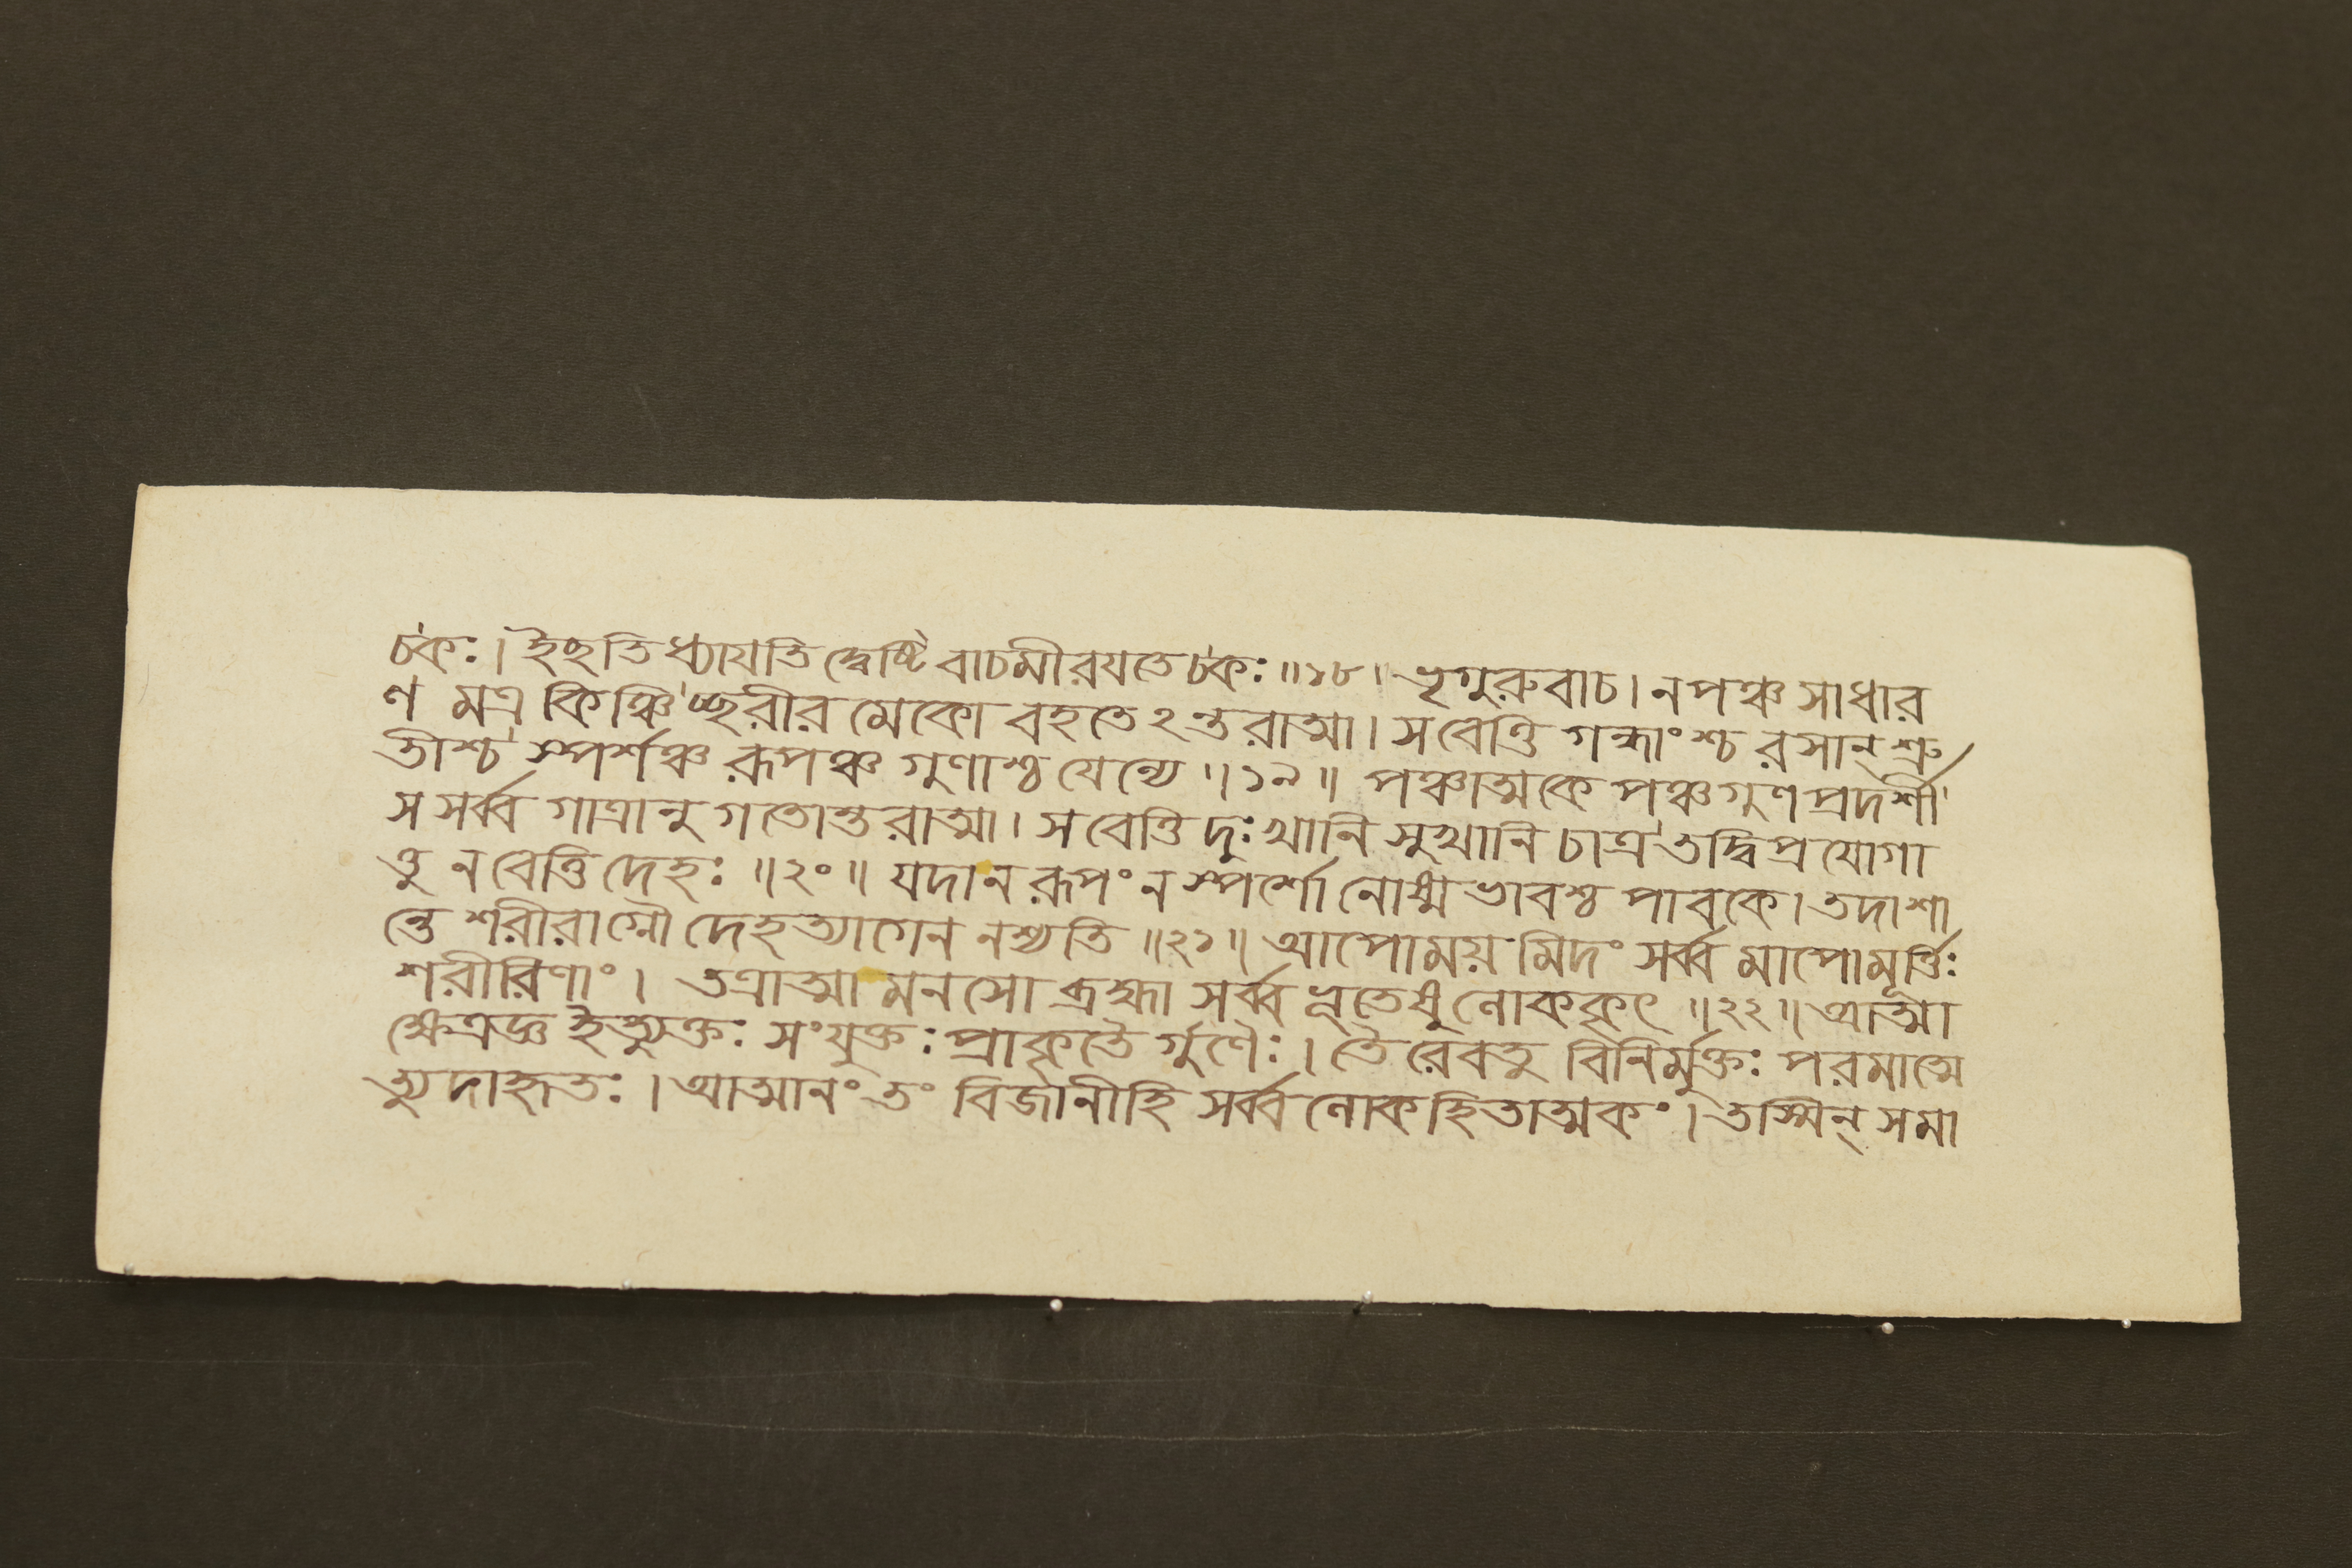 চকঃ। ইচ্ছতি ধ্যাযতি দ্বেষ্টি বাচমীরযতে চকঃ॥১৮। ভৃগুরুবাচ। নপঞ্চসাধার
ণ মত্র কিঞ্চিচ্ছরীর মেকো বহতেঽন্তরাত্মা। সবেত্তি গন্ধাংশ্চ রসান্ শ্রু
তীশ্চ স্পর্শঞ্চ রূপঞ্চ গুণাশ্চ যেন্যে॥১৯॥ পঞ্চাত্মকে পঞ্চগুণপ্রদর্শী
স সর্ব্ব গাত্রানুগতোন্তরাত্মা। সবেত্তি দুঃখানি সুখানি চাত্র তদ্বিপ্রযোগা
ত্তু ন বেত্তি দেহঃ॥২০॥ যদা ন রূপং ন স্পর্শো নোষ্মভাবশ্চ পাবকে। তদা শা
ন্তে শরীরাগ্নৌ দেহত্যাগেন নশ্যতি॥২১॥ আপোময় মিদং সর্ব্ব মাপোমূর্ত্তিঃ
শরীরিণাং। তত্রাত্মা মনসো ব্রহ্মা সর্ব্ব ভূতেষু লোককৃৎ॥২২॥ আত্মা
ক্ষেত্রজ্ঞ ইত্যুক্তঃ সংযুক্তঃ প্রাকৃতৈ র্গুণৈঃ। তৈ রেবতু বিনির্মুক্তঃ পরমাত্মে
ত্যুদাহৃতঃ। আত্মানং তং বিজানীহি সর্ব্ব লোকহিতাত্মকং। তস্মিন্ সমা